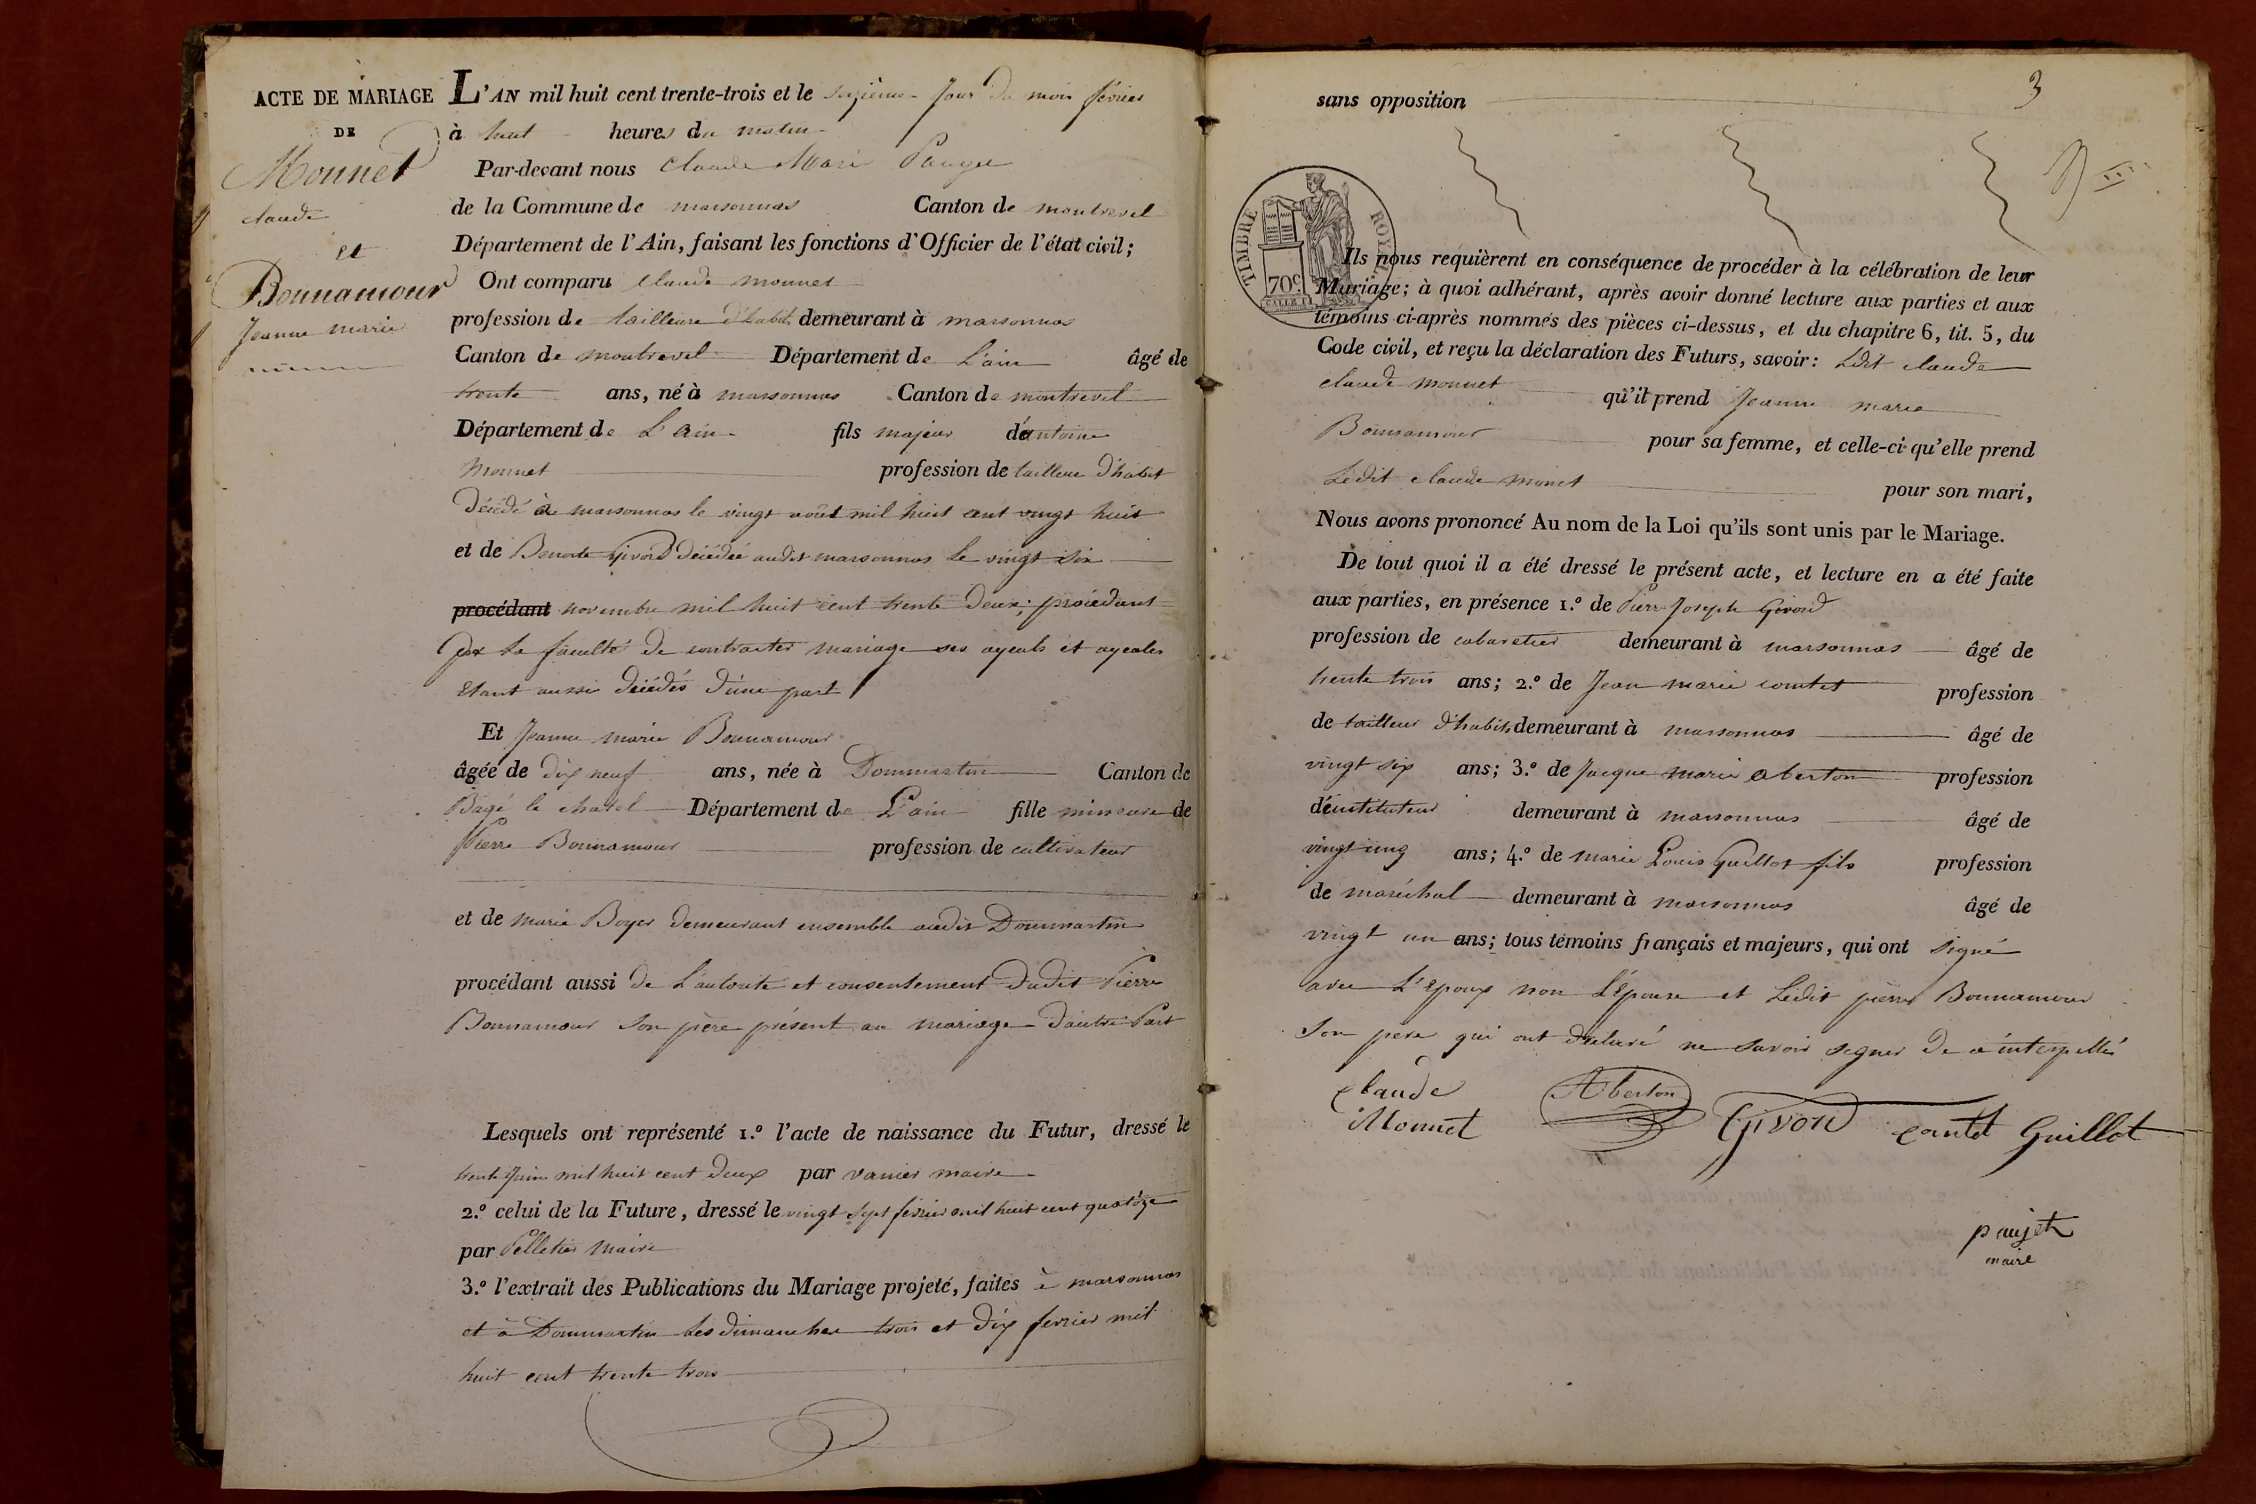 ACTE DE MARIAGE
DE
Monnet
claude
et
Bonnamour
Jeanne marie
L'AN mil huit cent trente-trois et le seizième Jour du mois février
à huit heures du matin
Par-devant nous Claude Marie
de la Commune de marsonnas Canton de montrevel
Département de l'Ain, faisant les fonctions d'Officier de l'état civil;
Ont comparu Claude monnet
profession de tailleure d'habits demeurant à marsonnas
Canton de montrevel Département de L'ain âgé de
trente ans, né à marsonnas Canton de montrevel
Département de L'Ain fils majeur d'antoine
Monnet profession de tailleur d'habit
Décédé à marsonnas le vingt août mil huit cent vingt huit
et de Benoite Givord décédée audit marsonnas le vingt six
procédant novembre mil huit cent trente deux; procédant
la faculté de contracter mariage ses ayeuls et ayeules
étant aussi décédés d'une part
Et Jeanne marie Bonnamour
âgée de dix neuf ans, née à Dommartin Canton de
Bagé le chatel Département de L'ain fille mineure de
Pierre Bonnamour profession de cultivateur
et de marie Boyer demeurant ensemble audit Dommartin
procédant aussi de L'autorité et consentement dudit Pierre
Bonnamour son père présent au mariage d'autre Part
Lesquels ont représenté 1.º l'acte de naissance du Futur, dressé le
trente Juin mil huit cent deux par vanier maire
2.º celui de la Future, dressé le vingt sept février mil huit cent quatorze
par Pelletier Maire
3.º l'extrait des Publications du Mariage projeté, faites à marsonnas
et à Dommartin les dimanches trois et dix fevrier mil
huit cent trente trois
3
sans opposition
TIMBRE ROYAL
70c.
Ils nous requièrent en conséquence de procéder à la célébration de leur
Mariage; à quoi adhérant, après avoir donné lecture aux parties et aux
témoins ci-après nommés des pièces ci-dessus, et du chapitre 6, tit. 5, du
Code civil, et reçu la déclaration des Futurs, savoir: Ledit claude
claude monnet qu'il prend Jeanne marie
Bonnamour pour sa femme, et celle-ci qu'elle prend
Ledit claude monet pour son mari,
Nous avons prononcé Au nom de la Loi qu'ils sont unis par le Mariage.
De tout quoi il a été dressé le présent acte, et lecture en a été faite
aux parties, en présence 1.º de Pierre Joseph Givord
profession de cabaretier demeurant à marsonnas âgé de
trente trois ans; 2.º de Jean marie comtet profession
de tailleur d'habits demeurant à marsonnas âgé de
vingt six ans; 3.º de Jacque marie aberton profession
d'instituteur demeurant à marsonnas âgé de
vingt cinq ans; 4.º de marie Louis Guillot fils profession
de maréchal demeurant à marsonnas âgé de
vingt un ans; tous témoins français et majeurs, qui ont signé
avec L'Epoux non L'Epouse et Ledit pierre Bonnamour
son père qui ont déclaré ne savoir signer de ce interpellés
claude
Monnet
Aberton
Givord
comtet
Guillot
paujet
maire